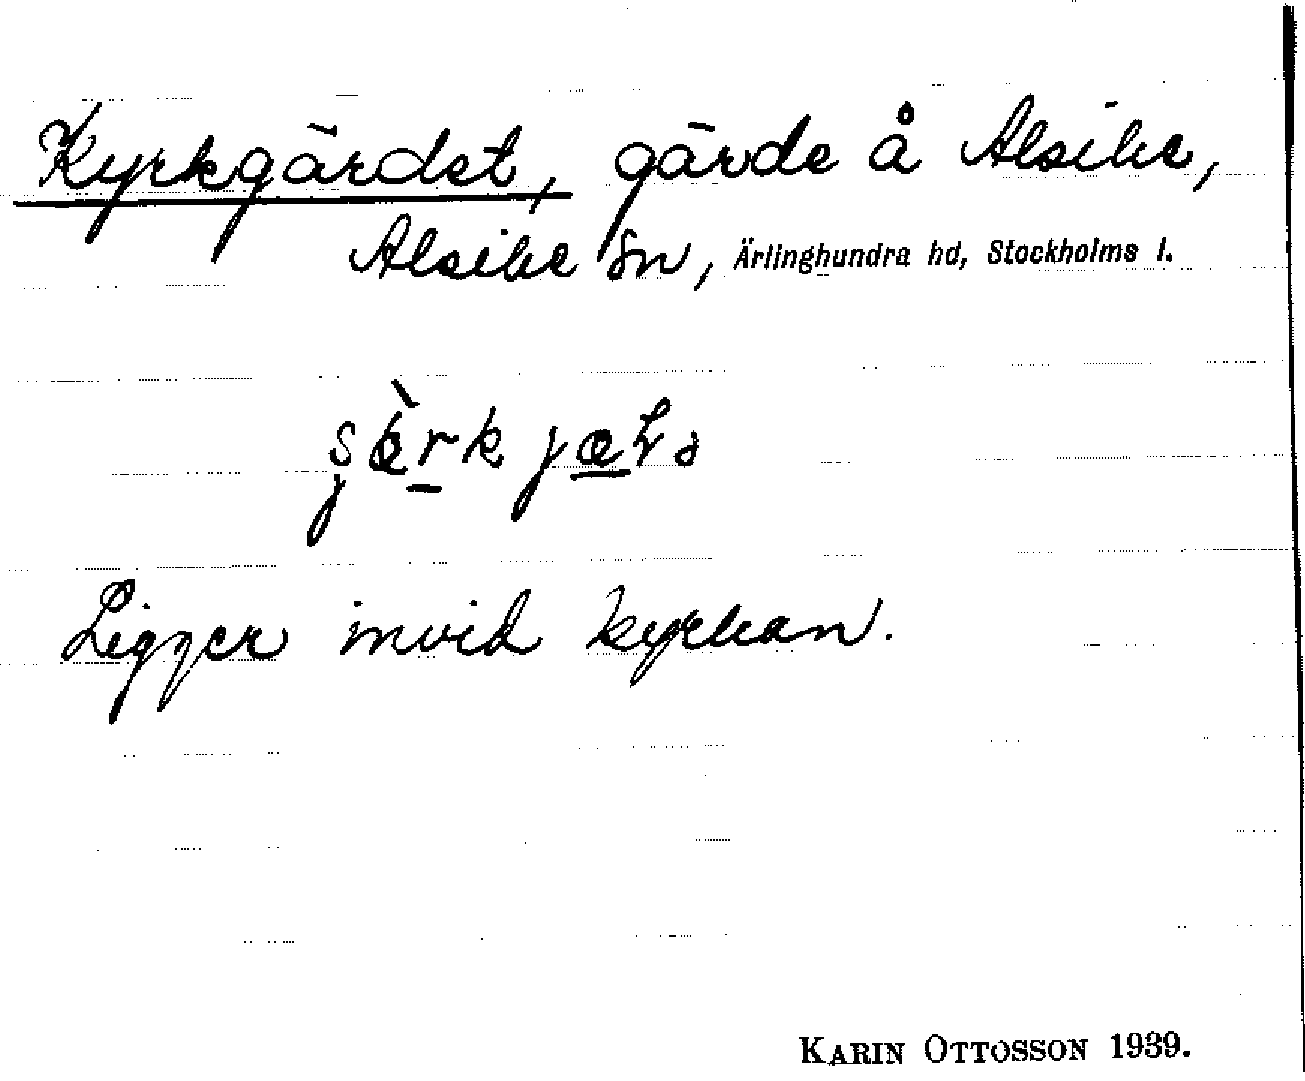 Kyrkgärdet, gärde å Alsike,
Alsike sn, Ärlinghundra hd, Stockholms l.
Ligger invid kyrkan.
KARIN OTTOSSON 1939.